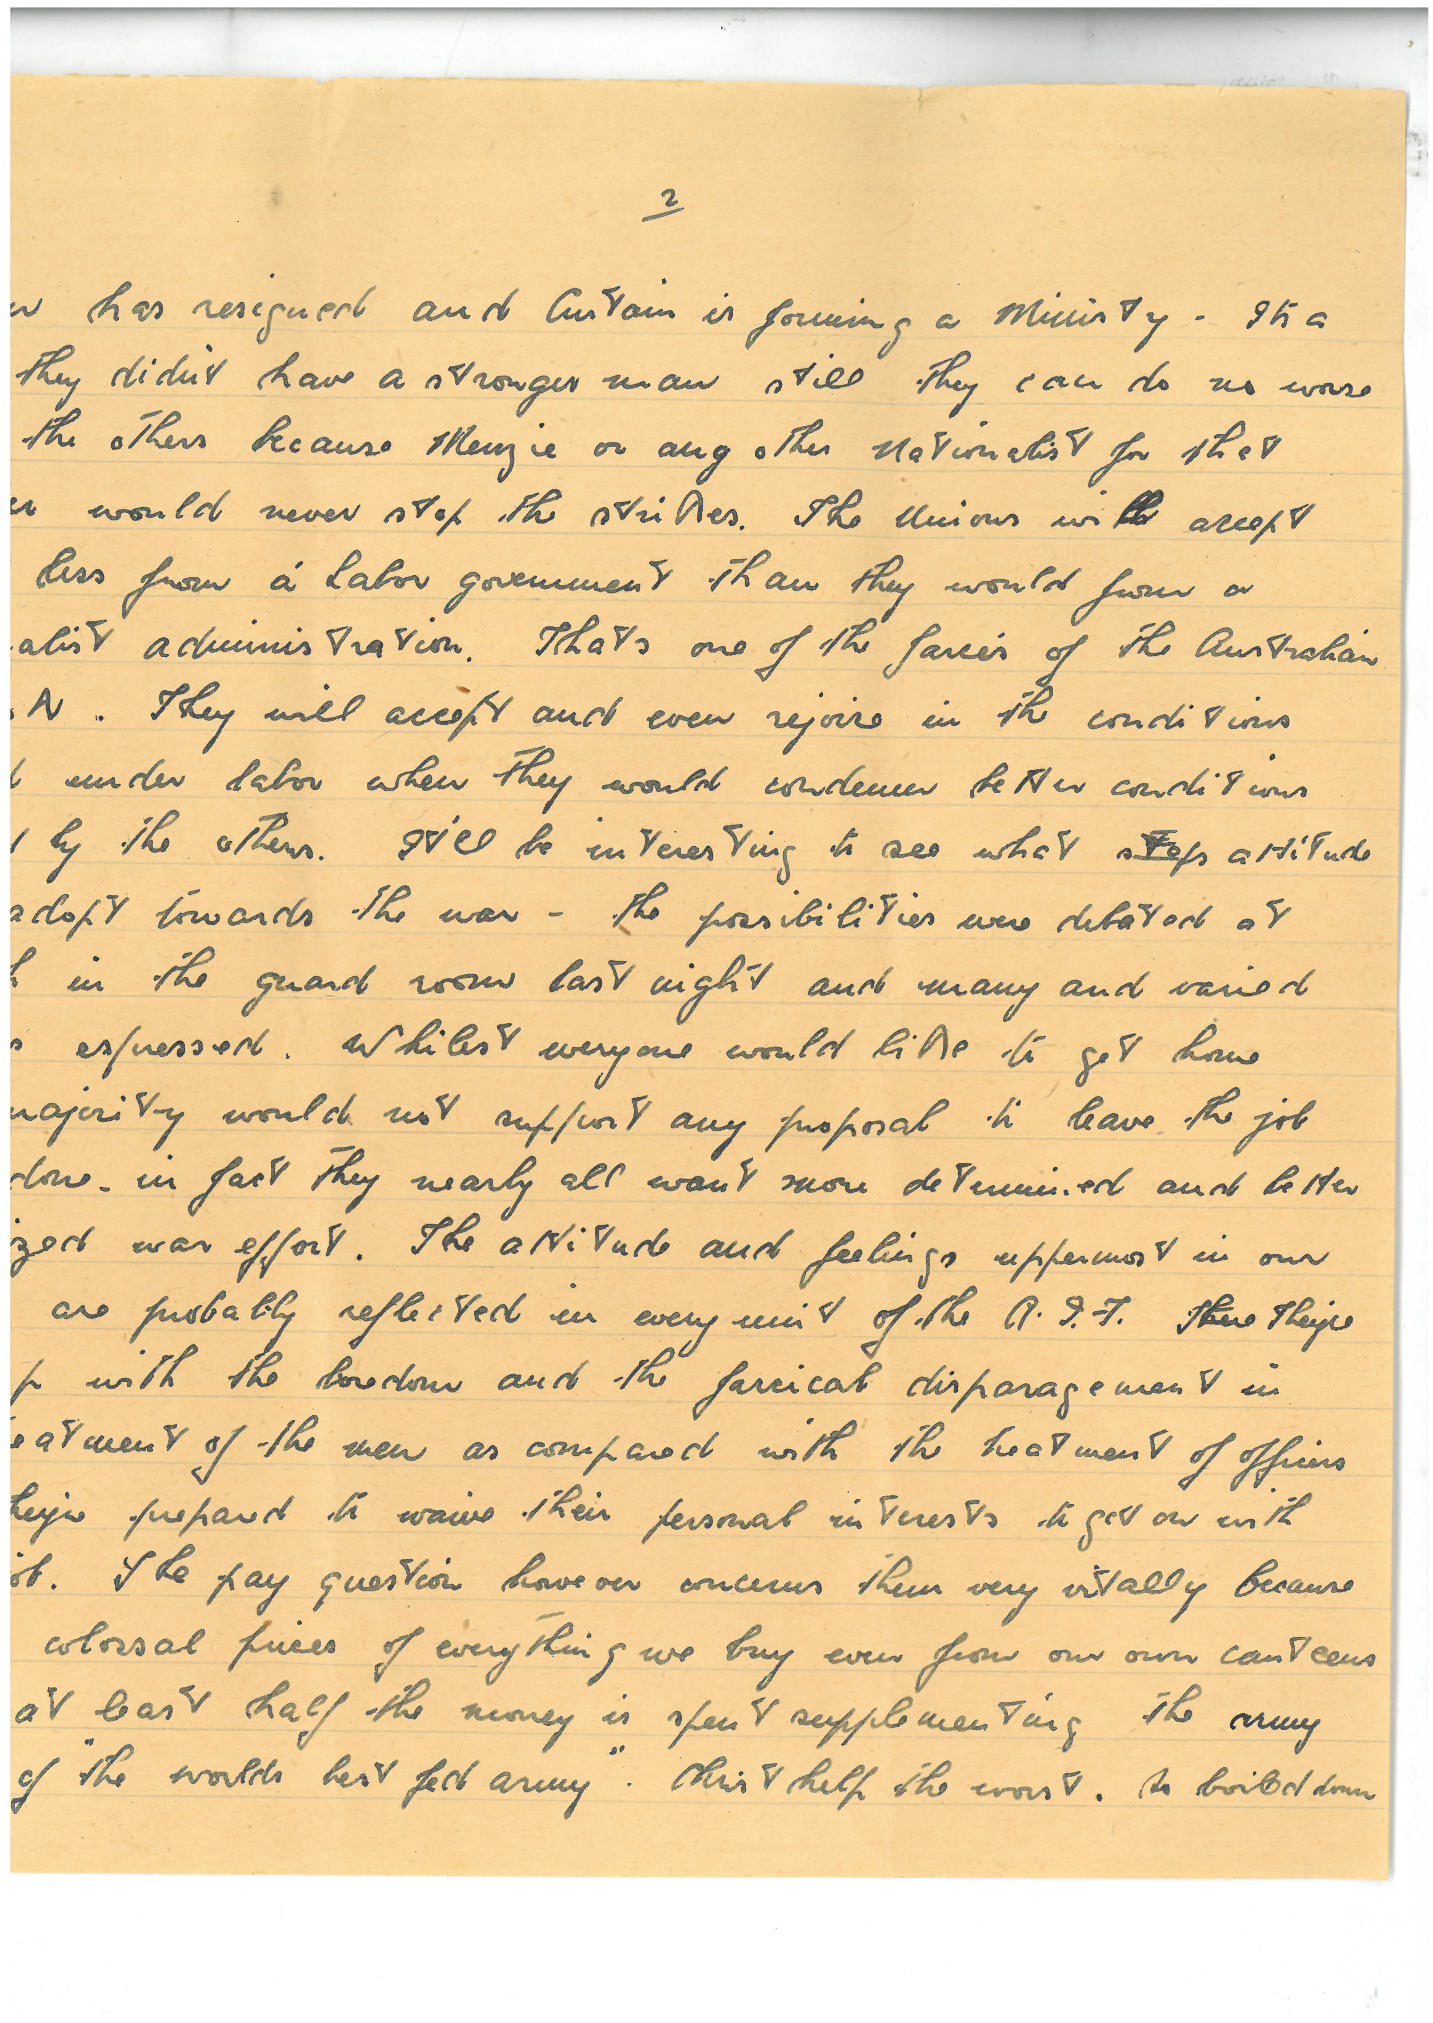 2
has resigned and Curtain is forming a Ministry - Its a
they didn't have a stronger man still they can do no worse
the others because Menzie or any other Nationalist for that
would never stop the strikes. The Unions will accept
less from a labor government than they would from a
alist administration. Thats one of the farces of the Australian
N. They will accept and even rejoice in the conditions
under labor when they would condemn better conditions
by the others. It'll be interesting to see what steps attitude
adopt towards the war - the possibilities were debated at
in the guard room last night and many and varied
s expressed. Whilest everyone would like to get home
majority would not support any proposal to leave the job
done - in fact they nearly all want more determined and better
ized war effort. The attitude and feelings uppermost in our
are probably reflected in every unit of the A.I.F. Theyre
p with the boredom and the farcical disparagement in
eatment of the men as compared with the treatment of officers
heyre prepared to waive their personal interests to get on with
ob. The pay question however concerns them very vitally because
colossal prices of everything we buy even from our own canteens
at least half the money is spent supplementing the army
of "the worlds best fed army". Christ help the worst. So boiled down